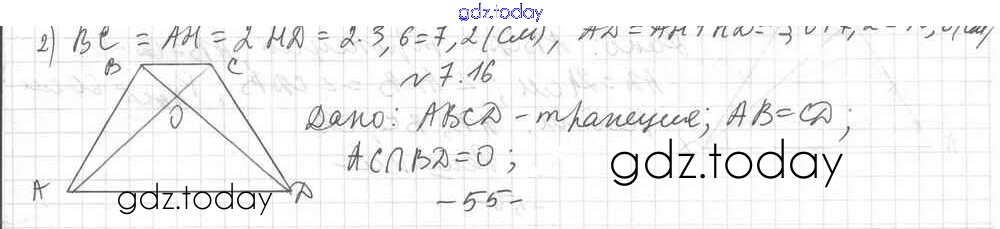 gdz.today
2) BC = AH = 2 HD = 2·3,6 = 7,2 (см), AD = AH + HD =
B C
№ 7.16
O
Дано: ABCD – трапеция; AB = CD;
AC∩BD = O;
gdz.today
A D
gdz.today
– 55 –